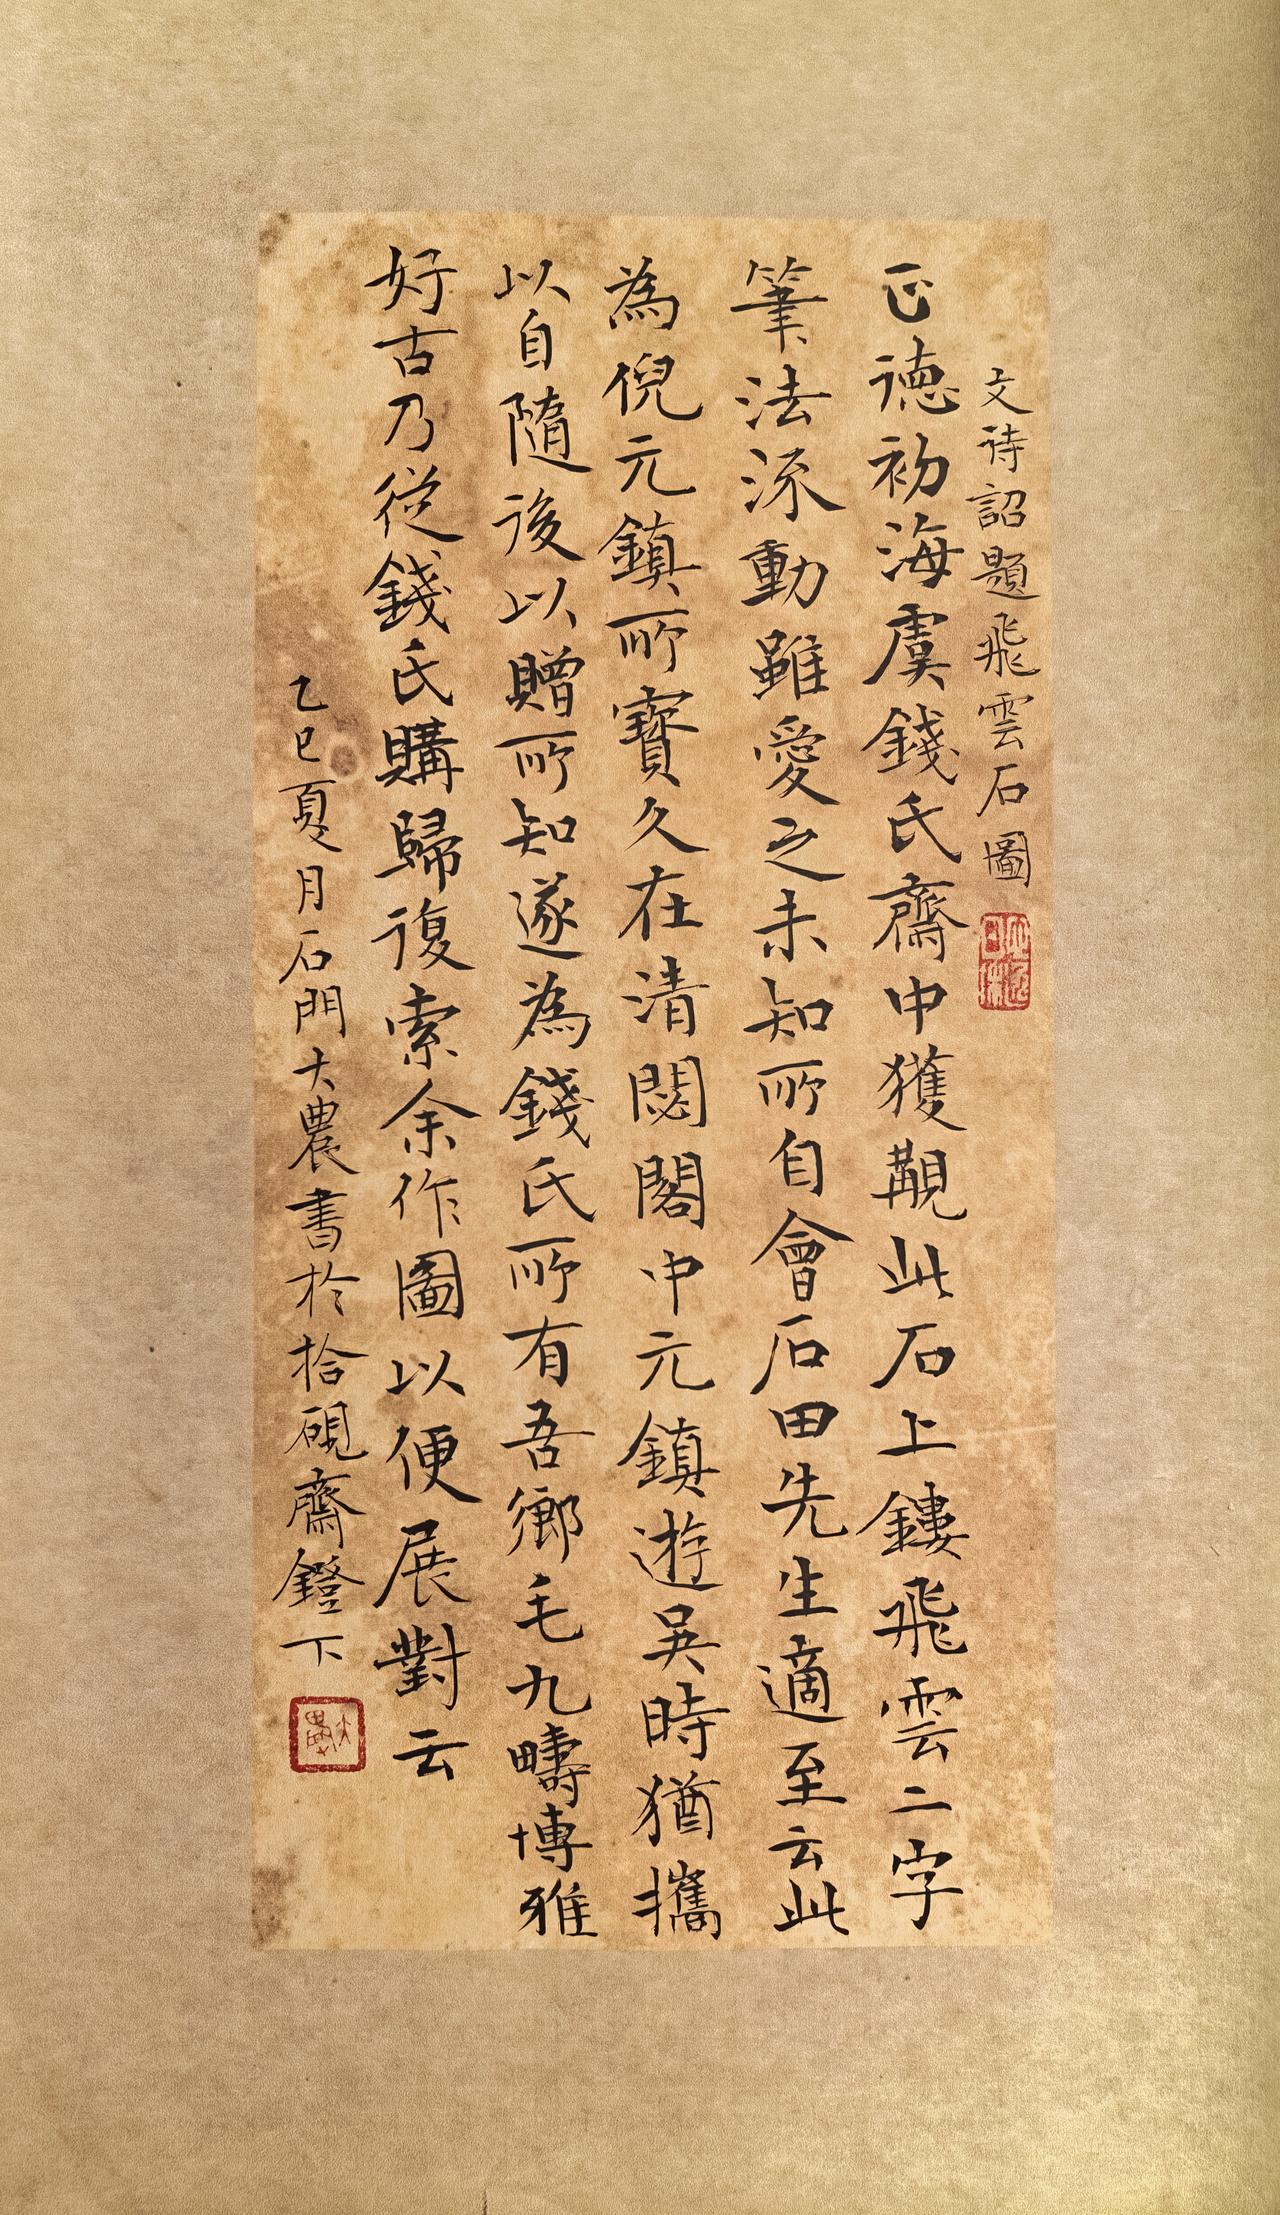 文待詔題飛雲石圖
正德初海虞錢氏齋中獲觀此石上鏤飛雲二字
筆法流動雖愛之未知所自會石田先生適至云此
為倪元鎮所寶久在清閟閣中元鎮遊吳時猶攜
以自隨後以贈所知遂為錢氏所有吾鄉毛九疇博雅
好古乃從錢氏購歸復索余作圖以便展對云
乙巳夏月石門大農書於拾硯齋鐙下